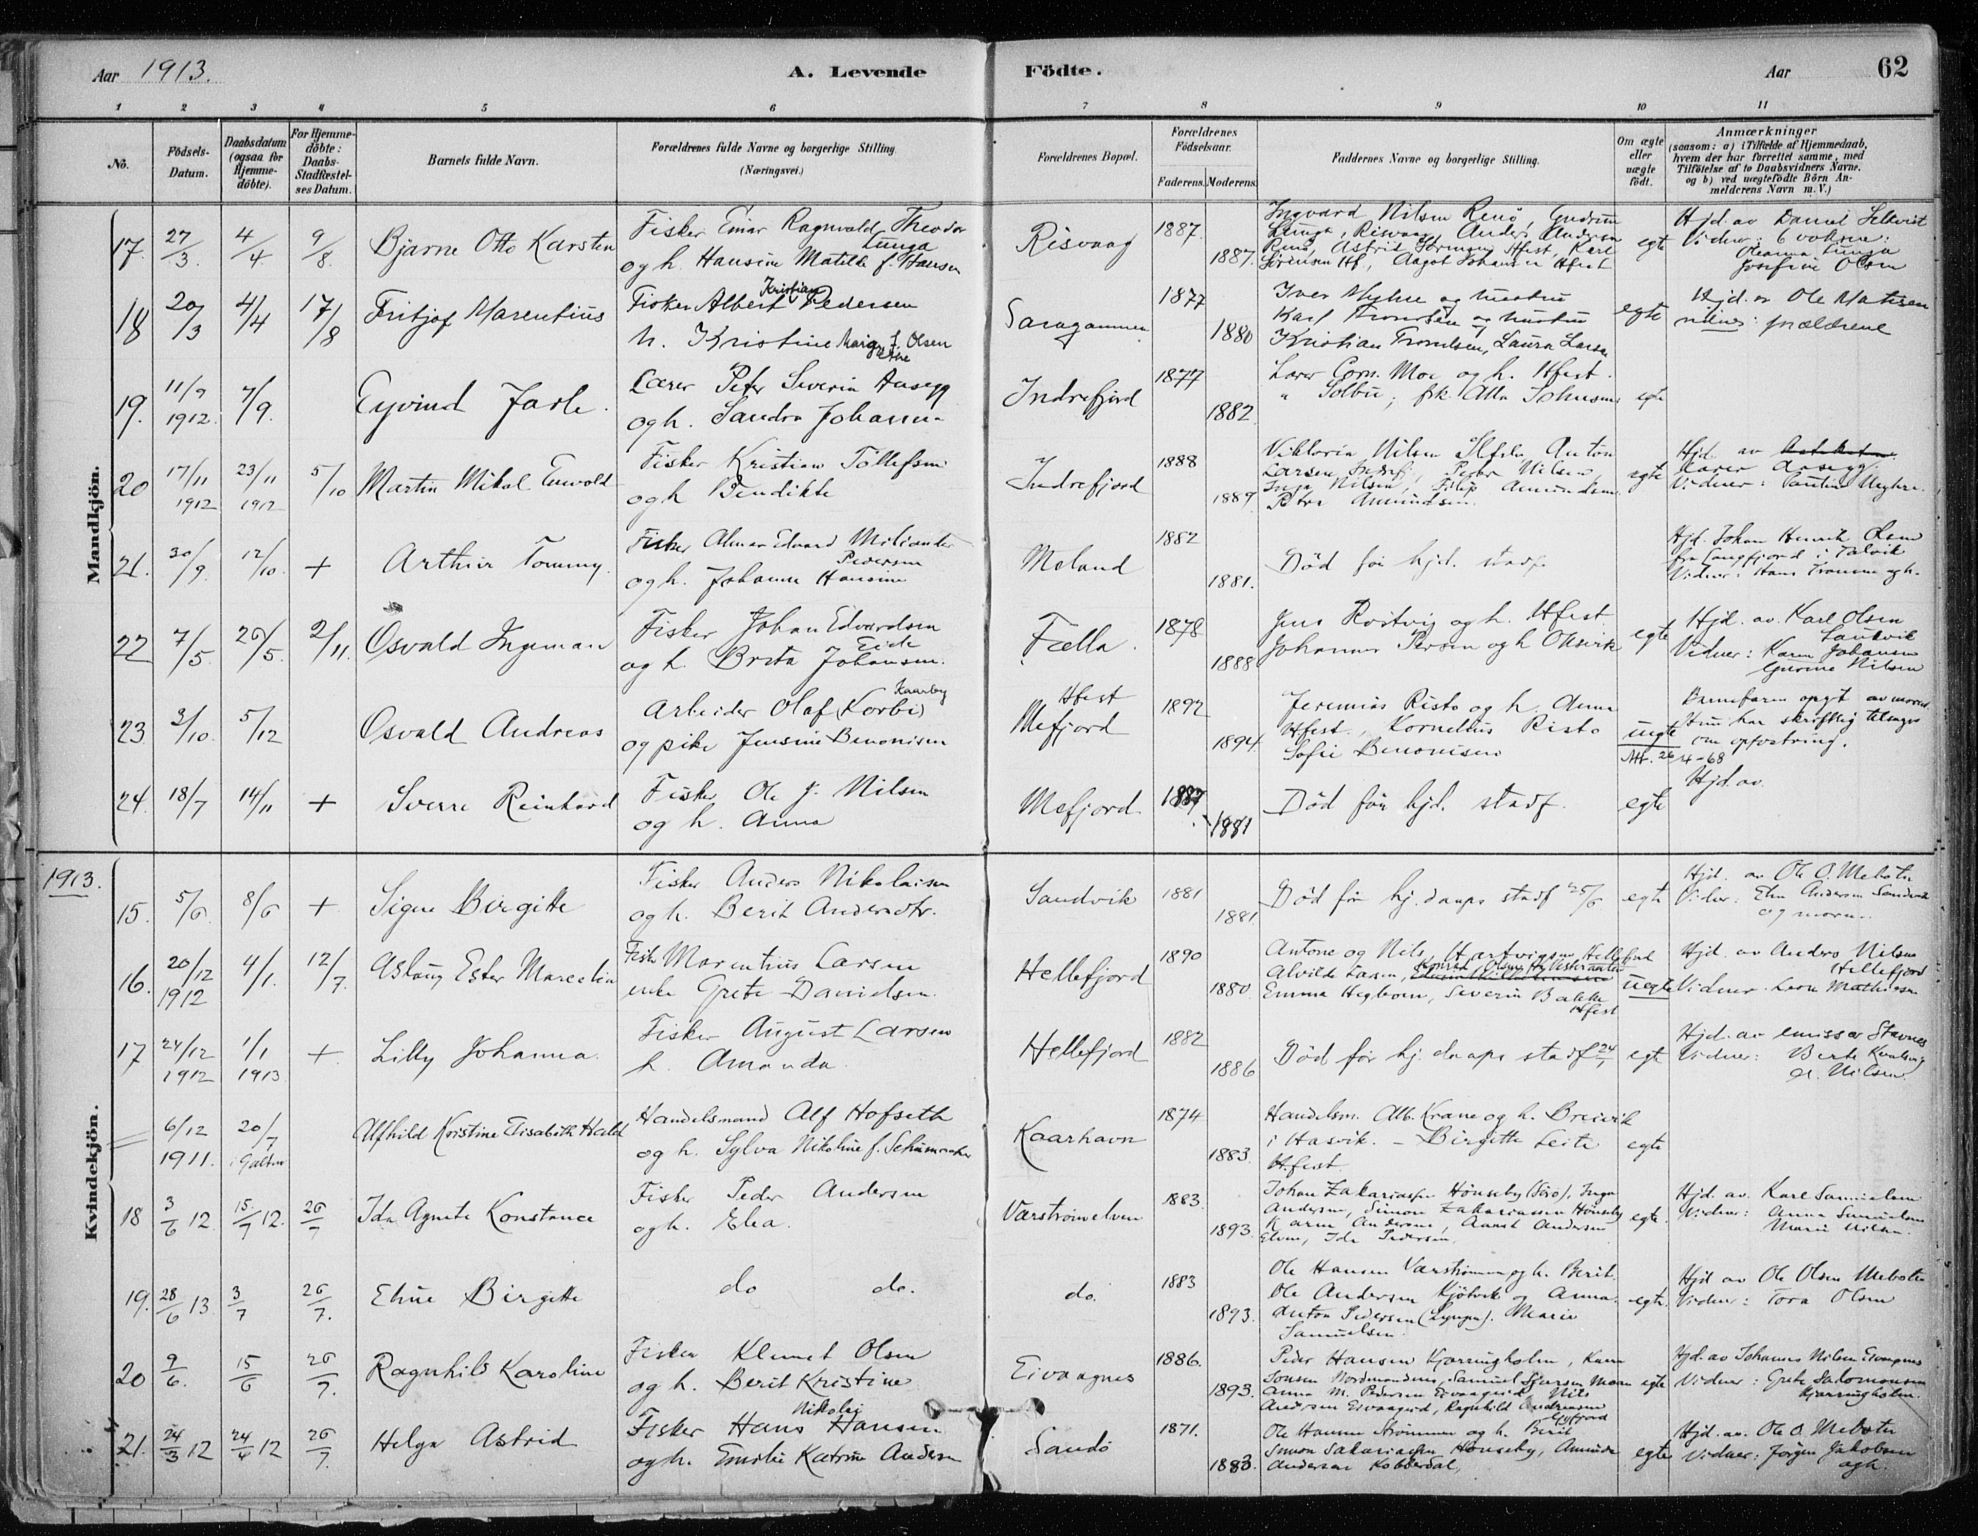 Aar 1913.
A. Levende Födte.
Aar
62
1 2 3 4 5 6 7 8 9 10 11
No.
Födsels-Datum.
Daabsdatum (ogsaa for Hjemme-döbte).
For Hjemme-döbte: Daabs-Stadfæstel-ses Datum.
Barnets fulde Navn.
Forældrenes fulde Navne og borgerlige Stilling (Næringsvei.)
Forældrenes Bopæl.
Forældrenes Födselsaar.
Faderens. Moderens.
Faddernes Navne og borgerlige Stilling.
Om ægte eller uægte födt.
Anmærkninger
(saasom: a) i Tilfælde af Hjemmedaab,
hvem der har forrettet samme, med
Tilföielse af to Daabsvidners Navne,
og b) ved uægtefödte Börn An-
melderens Navn m. V.)
Mandkjön.
17. 27/3. 4/4 9/8. Bjarne Otto Karsten
Fisker Einar Ragnvald Theodor
Lunga
og h. Hansine Matilde f. Hansen
Risvaag 1887. 1887.
Ingvard Nilsen Renö, Gudrun
Lunga, Risvaag, Anders Andersen
Renö, Astrid Hfest, Karl
Sörensen Hf, Aagot Johansen Hfest
egte
Hjd. av Daniel
Vidner: 6 voksne:
Oleanna Lunga
Josefine Olsen
18 20/3 4/4 17/8 Fritjof Marentius
Kristian
Fisker Albert Pedersen
h. Kristine Margrethe f. Olsen
1877 1880
Iver Myhre og hustru
Karl og hustru
Kristian Tronsen, Laura Larsen
egte
Hjd. av Ole
vidner: forældrene
19. 11/9 1912. 7/9. Eyvind Jarle.
Lærer Peter Severin Aasegg
og h. Sandra Johanna
Indrefjord 1877 1882.
Lærer Corn. Moe og h. Hfest.
" Solbu; frk. Alla Johnsen
egte
20 17/11 1912 23/11 1912 5/10 Martin Mikal Enevold
Fisker Kristian Töllefsen
og h Bendikte
Indrefjord 1888 1889
Viktoria Nilsen Anton
Larsen Indref, Peder Nilsen,
Inga Nilsen, Filip Amundsen
Petra Amundsen.
egte
Hjd. av
Lærer Aasegg.
Vidner: Myhre.
21. 30/9. 12/10. + Arthur Tommy.
Fisker Almar Edvard
Pedersen
og h. Johanne Hansine
Meland 1882 1881.
Död för hjd. stadf.
Hjd. Johan Henrik Olsen
fra Langfjord i Talvik
Vidner: Hans og h.
22 7/5. 26/5. 2/11. Osvald Ingeman
Fisker Johan Edvardsen
Eide
og h. Berta Johansen.
Fælla. 1878. 1888
Jens Rostvig og h. Hfest.
Johannes og h Oksvik
egte
Hjd. av. Karl Olsen
Vidner: Karen Johansen
Gurine Nilsen
23 3/10. 5/12 Osvald Andreas
Kaarby
Arbeider Olaf (Korbi)
og pike Jensine Benonisen
Hfest
Mefjord 1892 1894
Jeremias Risto og h. Anna
Hfest., Kornelius Risto
Sofie Benonisen
uegte
Att. 26/4-68
Barnefaren opgit av moren.
Hun har skriftlig tilsagn
om opfostring.
24. 18/7 14/11 + Sverre Reinhard
Fisker Ole J. Nilsen
og h. Anna
Mefjord. 1887. 1881
Död för hjd. stadf.
egte
Hjd. av
1913.
Kvindekjön.
15. 5/6. 8/6 + Signe Birgitte
Fisker Anders Nikolaisen
og h. Berit Andersdtr.
Sandvik 1881 1881.
Död för hj. daaps stadf 25/6
egte
Hjd. av Ole O. Mebotn
Vidner: Elen Andersen Sandvik
og moren.
16. 20/12 1912 4/1. 12/7. Aslaug Ester Marcelin
Fisker Marentius Larsen
enke Grete Danielsen.
Hellefjord 1890 1880.
Antone og Nils Hartvigsen Hellefjord
Alvilde Larsen,
Emma Hegbom, Severin Bakke
Hfest
uegte
Hjd. av Anders Nilsen
Hellefjord
Vidner. Mathisen
17 24/12 1912 1/1 1913 + Lilly Johanna.
Fisker August Larsen
h. Amanda.
Hellefjord 1882 1886
Död för hj. daaps stadf 24/1
egte
Hjd. av emissær Stavnes
Vidner: Berte Kvalsvig
Nilsen.
6/12 1911. 20/7 i Galten Alfhild Kristine Elisabeth Hald
Handelsmand Alf Hofseth
og h. Sylva Nikoline f. Schümacher
Kaarhavn 1874 1883.
Handelsm. Alb. Krane og h. Breivik
i Hasvik. – Birgitte Leite
Hfest.
egte
18 3/6 12. 15/7 12. 26/7 Ida Agnete Konstance
Fisker Peder Andersen
og h. Elea.
Værströmelven 1883. 1893.
Johan Zakariassen Hönseby (Sörö), Inga
Andersen, Simon Zakariassen Hönseby
Karen Andersen, August Andersen
Elven, Ida Pedersen.
egte.
Hjd. av. Karl Samuelsen
Vidner: Anna Samuelsen
Marie Nilsen.
19. 28/6 13 3/7 26/7. Eline Birgitte
do do.
do. 1883 1893.
Ole Hansen Værströmmen og h. Berit.
Ole Andersen Kjölvik og Anna.
Anton Pedersen (Lyngen). Marie
Samuelsen.
egte.
Hjd av Ole Olsen Mebotn
Vidner: Tora Olsen
20 9/6. 15/6 26/7. Ragnhild Karoline
Fisker Klemet Olsen
og h. Berit Kristine
Eivaagnes 1886. 1893.
Peder Hansen Kjærringholmen, Karen
Jonsen Nordmandsnes, Samuel Moan
Anna M. Pedersen Eivaagnes, Nils
Andersen Eivaagnes, Ragnhild Andreassen
egte
Hjd. av Johannes Nilsen Eivaagnes
Vidner: Grete Salomonsen
Kjærringholm.
21. 24/3 12 24/4 12 26/7 Helga Astrid
Nikolai
Fisker Hans Hansen
og h. Emilie Katrine Andersen
Sandö 1871. 1883.
Ole Hansen Strömmen og h. Berit
Simon Sakariassen Hönseby, Amunda
Andersen Kobberdal.
egte
Hjd. av. Ole O. Mebotn
Vidner: Jörgen Jakobsen
og h.